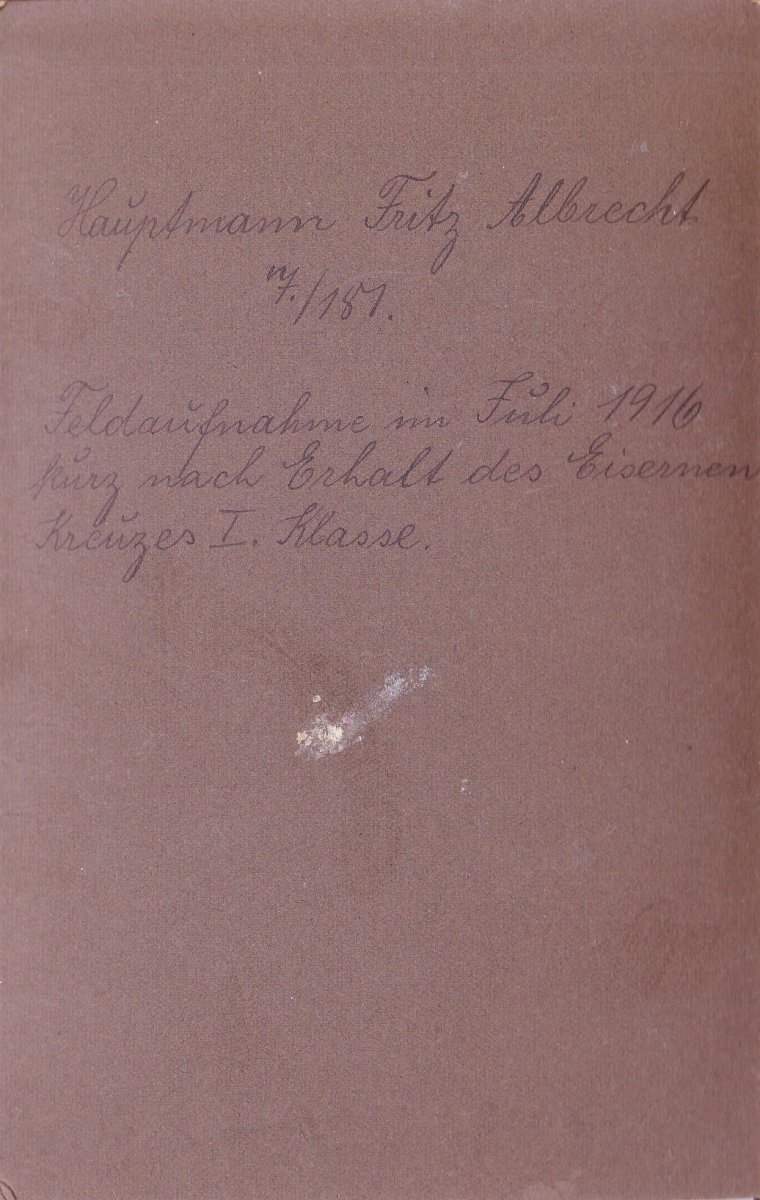 Hauptmann Fritz Albrecht
7./181.
Feldaufnahme im Juli 1916
kurz nach Erhalt des Eisernen
Kreuzes I. Klasse.